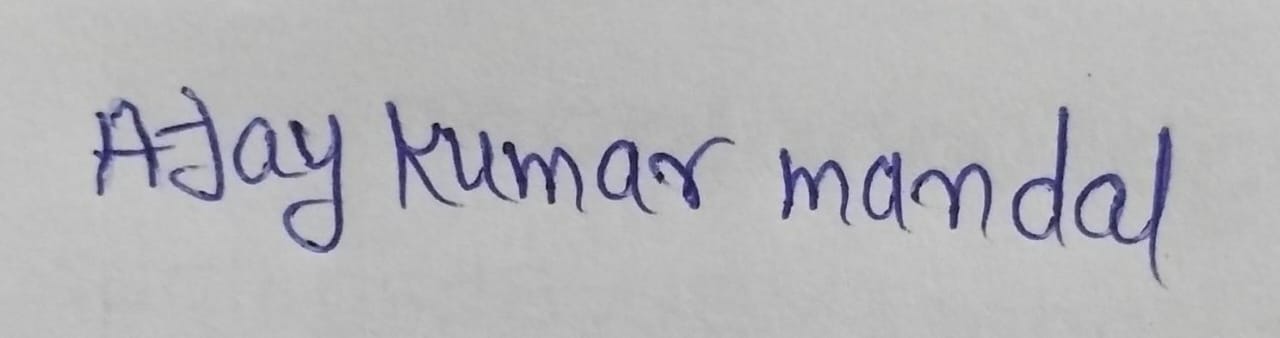 AJay kumar mandal